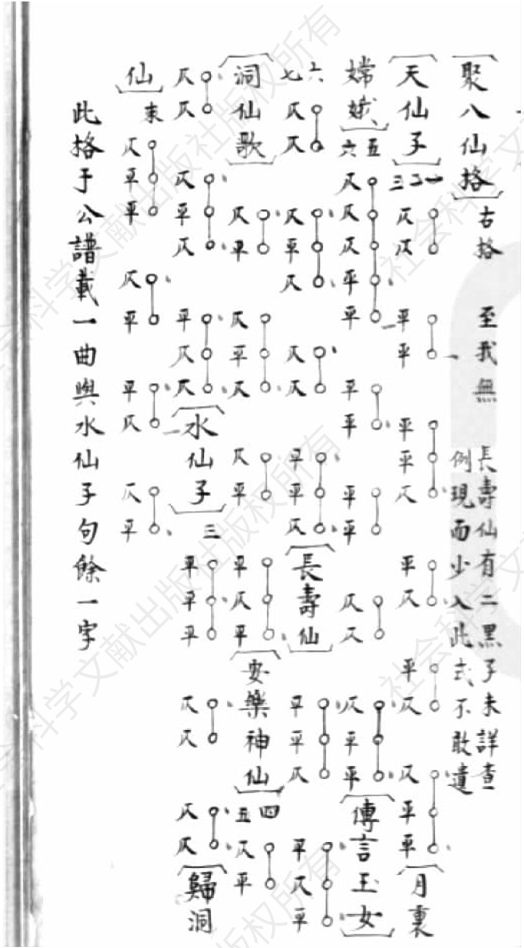 聚八仙格 古格 至我無 長壽仙有二黑子未詳查
例現而少入此式不敢遺
天仙子 一二三 仄仄 平平 平平仄 平仄 平仄 仄平平 月裏
嫦娥 五六 仄仄仄平平 平平 平平 仄仄 仄平平 傳言玉女
六七 仄仄 仄平仄 仄仄 平平仄 長壽仙 平平仄 平仄平
洞仙歌 仄平 仄平仄 仄平 平仄平 安樂神仙 四五 仄平
仄仄 仄平仄 平仄仄 水仙子 三 平平平 仄仄 仄仄 歸洞
仙 末 仄平平 仄平 平仄 仄平
此格于公譜載一曲與水仙子句餘一字